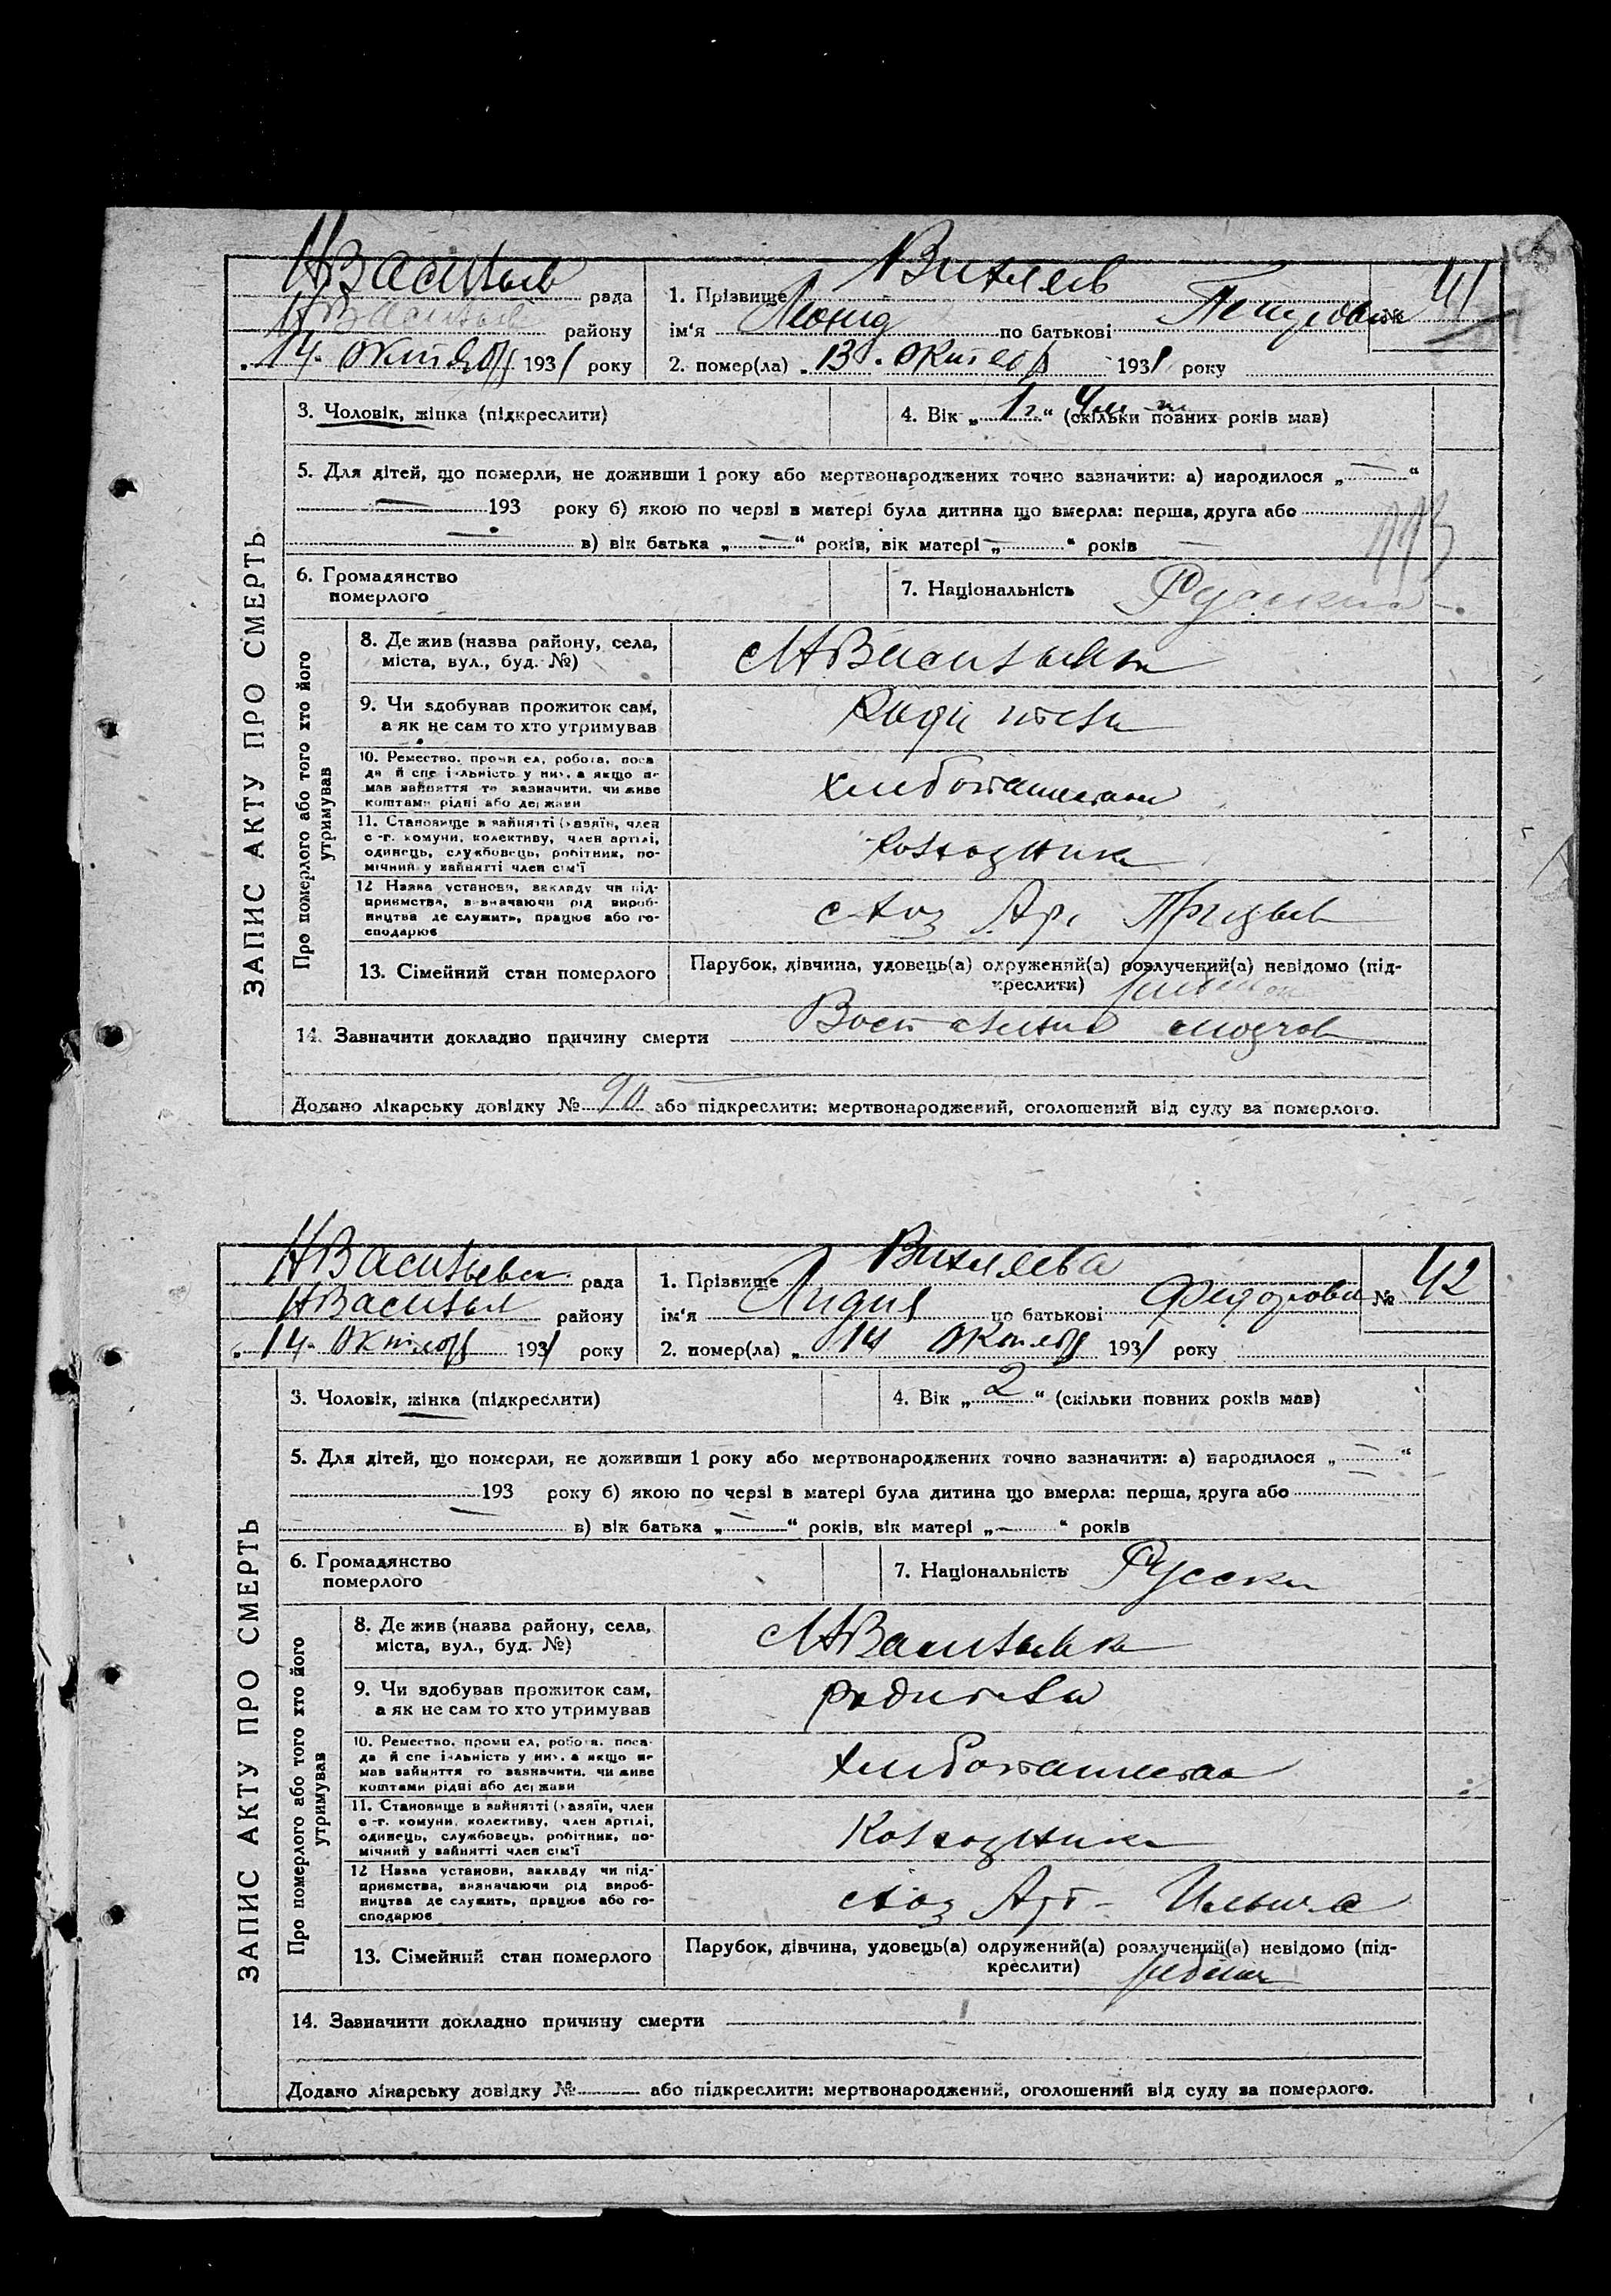 ЗАПИС АКТУ ПРО СМЕРТЬ
НВасильев рада
НВасильев району
„14. октября 1931 року
1. Прізвище Вихляев
ім‘я Леонид по батькові Петрович № 41
2. помер(ла) „13. октября 1931 року
3. Чоловік, жінка (підкреслити)
4. Вік „1 г. 4 м“ (скільки повних років мав)
5. Для дітей, що померли, не доживши 1 року або мертвонароджених точно зазначити: а) народилося „—“
— 193 року б) якою по черзі в матері була дитина що вмерла: перша, друга або
— в) вік батька „—“ років, вік матері „—“ років —
6. Громадянство
померлого
7. Національність Русский
Про померлого або того хто його
утримував
8. Де жив (назва району, села,
міста, вул., буд. №)
НВасильевка
9. Чи здобував прожиток сам,
а як не сам то хто утримував
Родители
10. Ремество, промисел, робота, поса
да й спеціяльність у них, а якщо не
мав зайняття то зазначити, чи живе
коштами рідні або держави
хлебопашество
11. Становище в зайнятті (хазяїн, член
с.-г. комуни, колективу, член артілі,
одинець, службовець, робітник, по-
мічний у зайнятті член сім‘ї
колхозника
12 Назва установи, закладу чи під-
приємства, визначаючи рід вироб-
ництва де служить, працює або го-
сподарює
с хоз Ар.
13. Сімейний стан померлого
Парубок, дівчина, удовець(а) одружений(а) розлучений(а) невідомо (під-
креслити) ребенок
14. Зазначити докладно причину смерти Воспаление мозгов
Додано лікарську довідку № 90 або підкреслити: мертвонароджений, оголошений від суду за померлого.
ЗАПИС АКТУ ПРО СМЕРТЬ
НВасильевск рада
НВасильев району
„14. октября 1931 року
1. Прізвище Вихляева
ім‘я Лидия по батькові Федоровн № 42
2. помер(ла) „14 октября 1931 року
3. Чоловік, жінка (підкреслити)
4. Вік „2“ (скільки повних років мав)
5. Для дітей, що померли, не доживши 1 року або мертвонароджених точно зазначити: а) народилося „—“
193 року б) якою по черзі в матері була дитина що вмерла: перша, друга або
— в) вік батька „—“ років, вік матері „—“ років
6. Громадянство
померлого
7. Національність Русски
Про померлого або того хто його
утримував
8. Де жив (назва району, села,
міста, вул., буд. №)
НВасильевка
9. Чи здобував прожиток сам,
а як не сам то хто утримував
родители
10. Ремество, промисел, робота, поса-
да й спеціяльність у них, а якщо не
мав зайняття то зазначити, чи живе
коштами рідні або держави
хлебопашество
11. Становище в зайнятті (хазяїн, член
с.-г. комуни, колективу, член артілі,
одинець, службовець, робітник, по-
мічний у зайнятті член сім‘ї
Колхозника
12 Назва установи, закладу чи під-
приємства, визначаючи рід вироб-
ництва де служить, працює або го-
сподарює
с хоз Арт- Ильича
13. Сімейний стан померлого
Парубок, дівчина, удовець(а) одружений(а) розлучений(а) невідомо (під-
креслити) ребенок
14. Зазначити докладно причину смерти
Додано лікарську довідку № — або підкреслити: мертвонароджений, оголошений від суду за померлого.